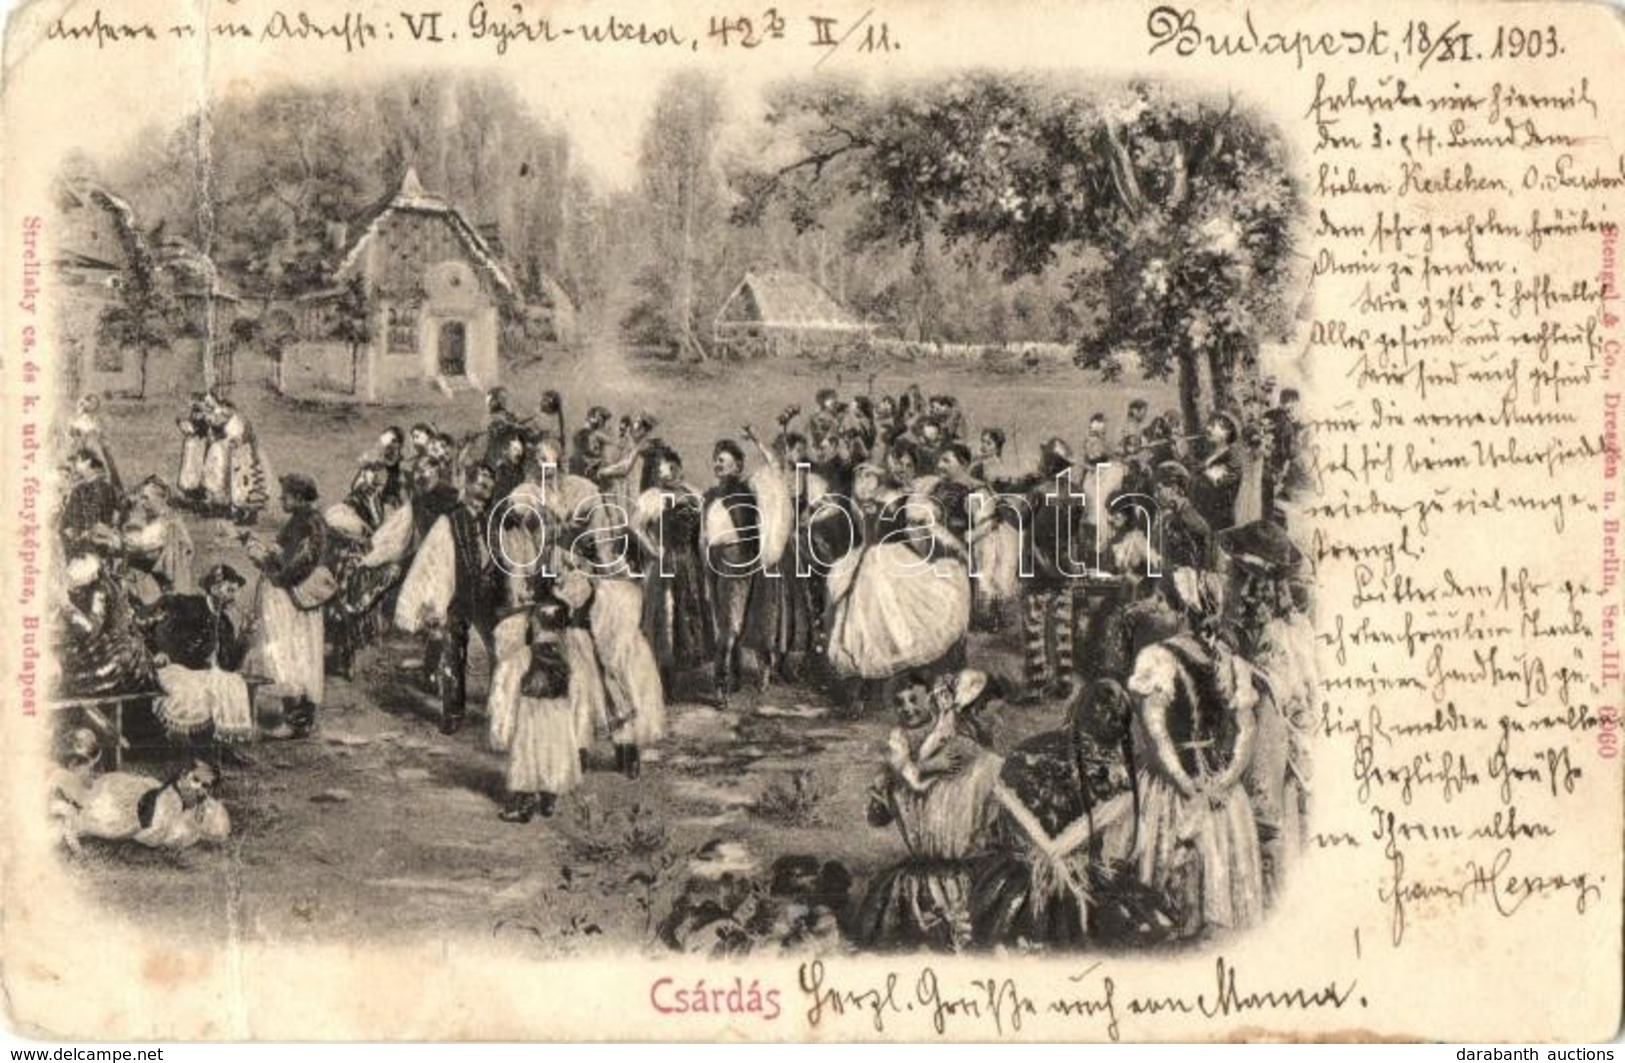 Unsere neue Adresse: VI. Gyár-utcza, 42 b II/11.
Budapest, 18/XI. 1903.
Erlaube mir hiermit
den 3. & 4. Band dem
lieben Kerlchen,
dem sehr geehrten Fräulein
zu senden.
Wie geht's? Hoffentlich
Alles gesund und wohlauf.
Wir sind auch gesund
nur die arme Mama
hat sich beim Uebersiedeln
wieder zu viel ange-
strengt.
Bitte dem sehr ge-
ehrten Fräulein
meinen Handkuß gü-
tigst melden zu wollen.
Herzlichste Grüße
von Ihrem alten
Herzog.
Strelisky cs. és k. udv. fényképész, Budapest
Stengel & Co., Dresden u. Berlin, Ser. III. 6960
darabanth
Csárdás
Herzl. Grüße auch von Mama!
www.darabanth.com
darabanth auctions